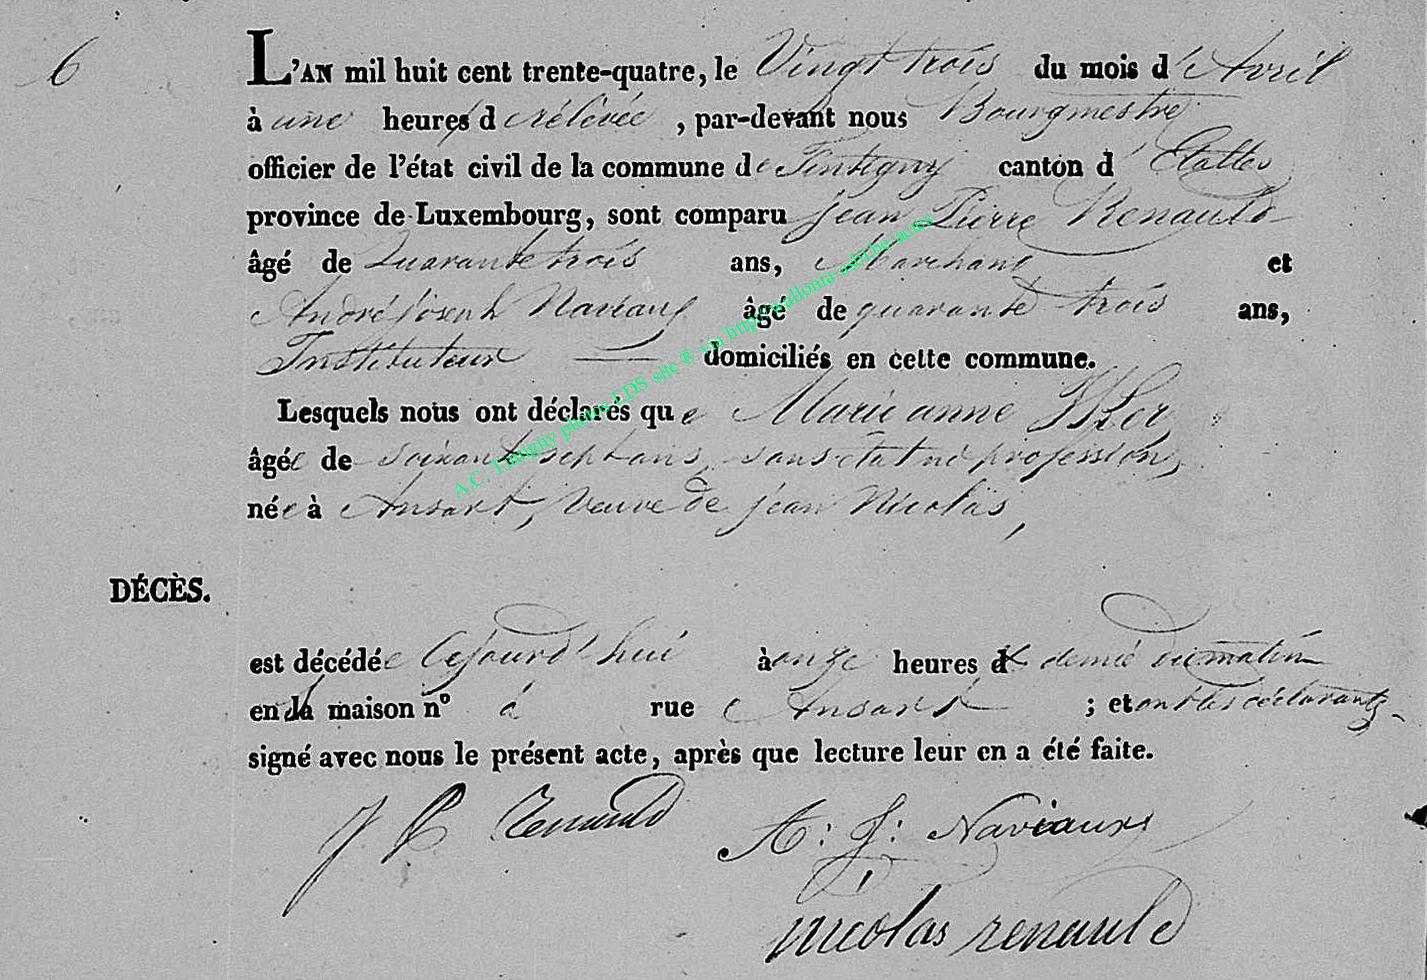 6
L'AN mil huit cent trente-quatre, le Vingt trois du mois d'Avril
à une heures d relévée, par-devant nous Bourgmestre
officier de l'état civil de la commune de Tintigny canton d'Etalle
province de Luxembourg, sont comparu Jean Pierre Renauld
âgé de Quarante trois ans, Marchand et
André Joseph Naviaux âgé de quarante trois ans,
Instituteur domiciliés en cette commune.
Lesquels nous ont déclarés que Marie anne
âgée de soixante sept ans, sans état ni profession,
née à Ansart, veuve de jean Nicolas,
DÉCÈS.
est décédée Cejourd'hui à onze heures & demie du matin
en la maison nº à rue Ansart ; et ont les déclarants
signé avec nous le présent acte, après que lecture leur en a été faite.
J P Renauld
A: J: Naviaux
nicolas renauld
A.C. Tintigny photos LDS site ® via http://wallonia-asbl.be/actes